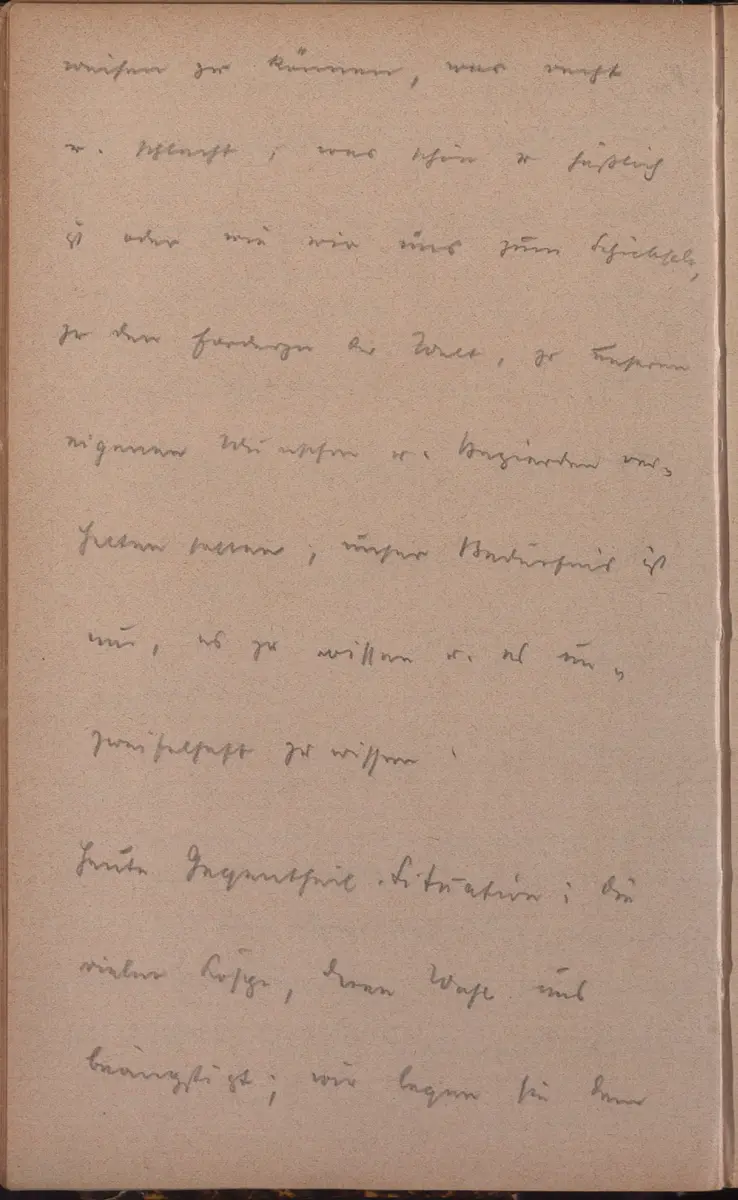 weisen zu können, was recht
u. schlecht, was schön u häßlich
ist oder wie wir uns zum Schicksale,
zu den Forderungen der Welt, zu unseren
eigenen Wünschen u. Begierden ver-
halten sollen; unser Bedürfnis ist
nur, es zu wissen u. es un-
zweifelhaft zu wissen.
Heute Gegentheil. Situation: die
vielen Köpfe, deren Wahl uns
beängstigt; wir legen sie dem